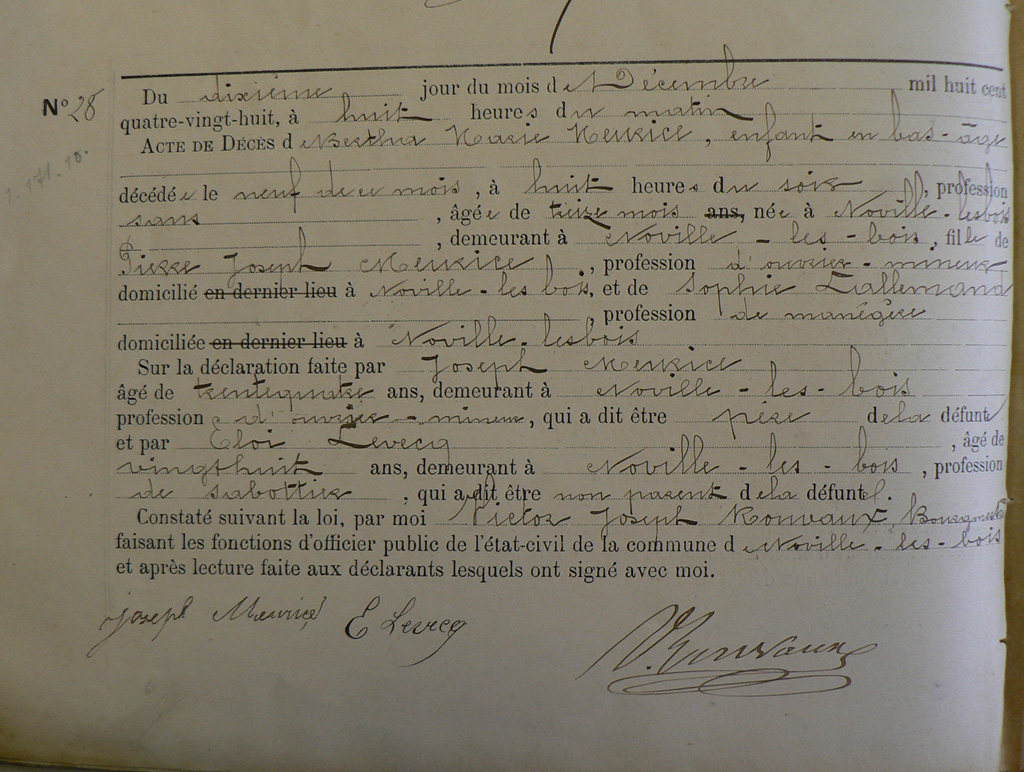 N° 28
Du dixième jour du mois de Décembre mil huit cent
quatre-vingt-huit, à huit heures du matin
ACTE DE DÉCÈS de Bertha Marie Meurice, enfant en bas-âge
décédée le neuf de ce mois, à huit heures du soir, profession
sans, âgée de treize mois ans, née à Noville-lesbois
, demeurant à Noville-les-bois, fille de
Pierre Joseph Meurice, profession d'ouvrier-mineur
domicilié en dernier lieu à Noville-les bois, et de Sophie Lallemand
, profession de manégère
domiciliée en dernier lieu à Noville-lesbois
Sur la déclaration faite par Joseph Meurice
âgé de trentequatre ans, demeurant à Noville-les-bois
profession d'ouvrier-mineur, qui a dit être père dela défunte
et par Eloi Levecq, âgé de
vingthuit ans, demeurant à Noville-les-bois, profession
de sabottier, qui a dit être non parent dela défunte.
Constaté suivant la loi, par moi Victor Joseph Ronvaux, Bourgmestre
faisant les fonctions d'officier public de l'état-civil de la commune de Noville-les-bois
et après lecture faite aux déclarants lesquels ont signé avec moi.
Joseph Meurice E Levecq V. Ronvaux